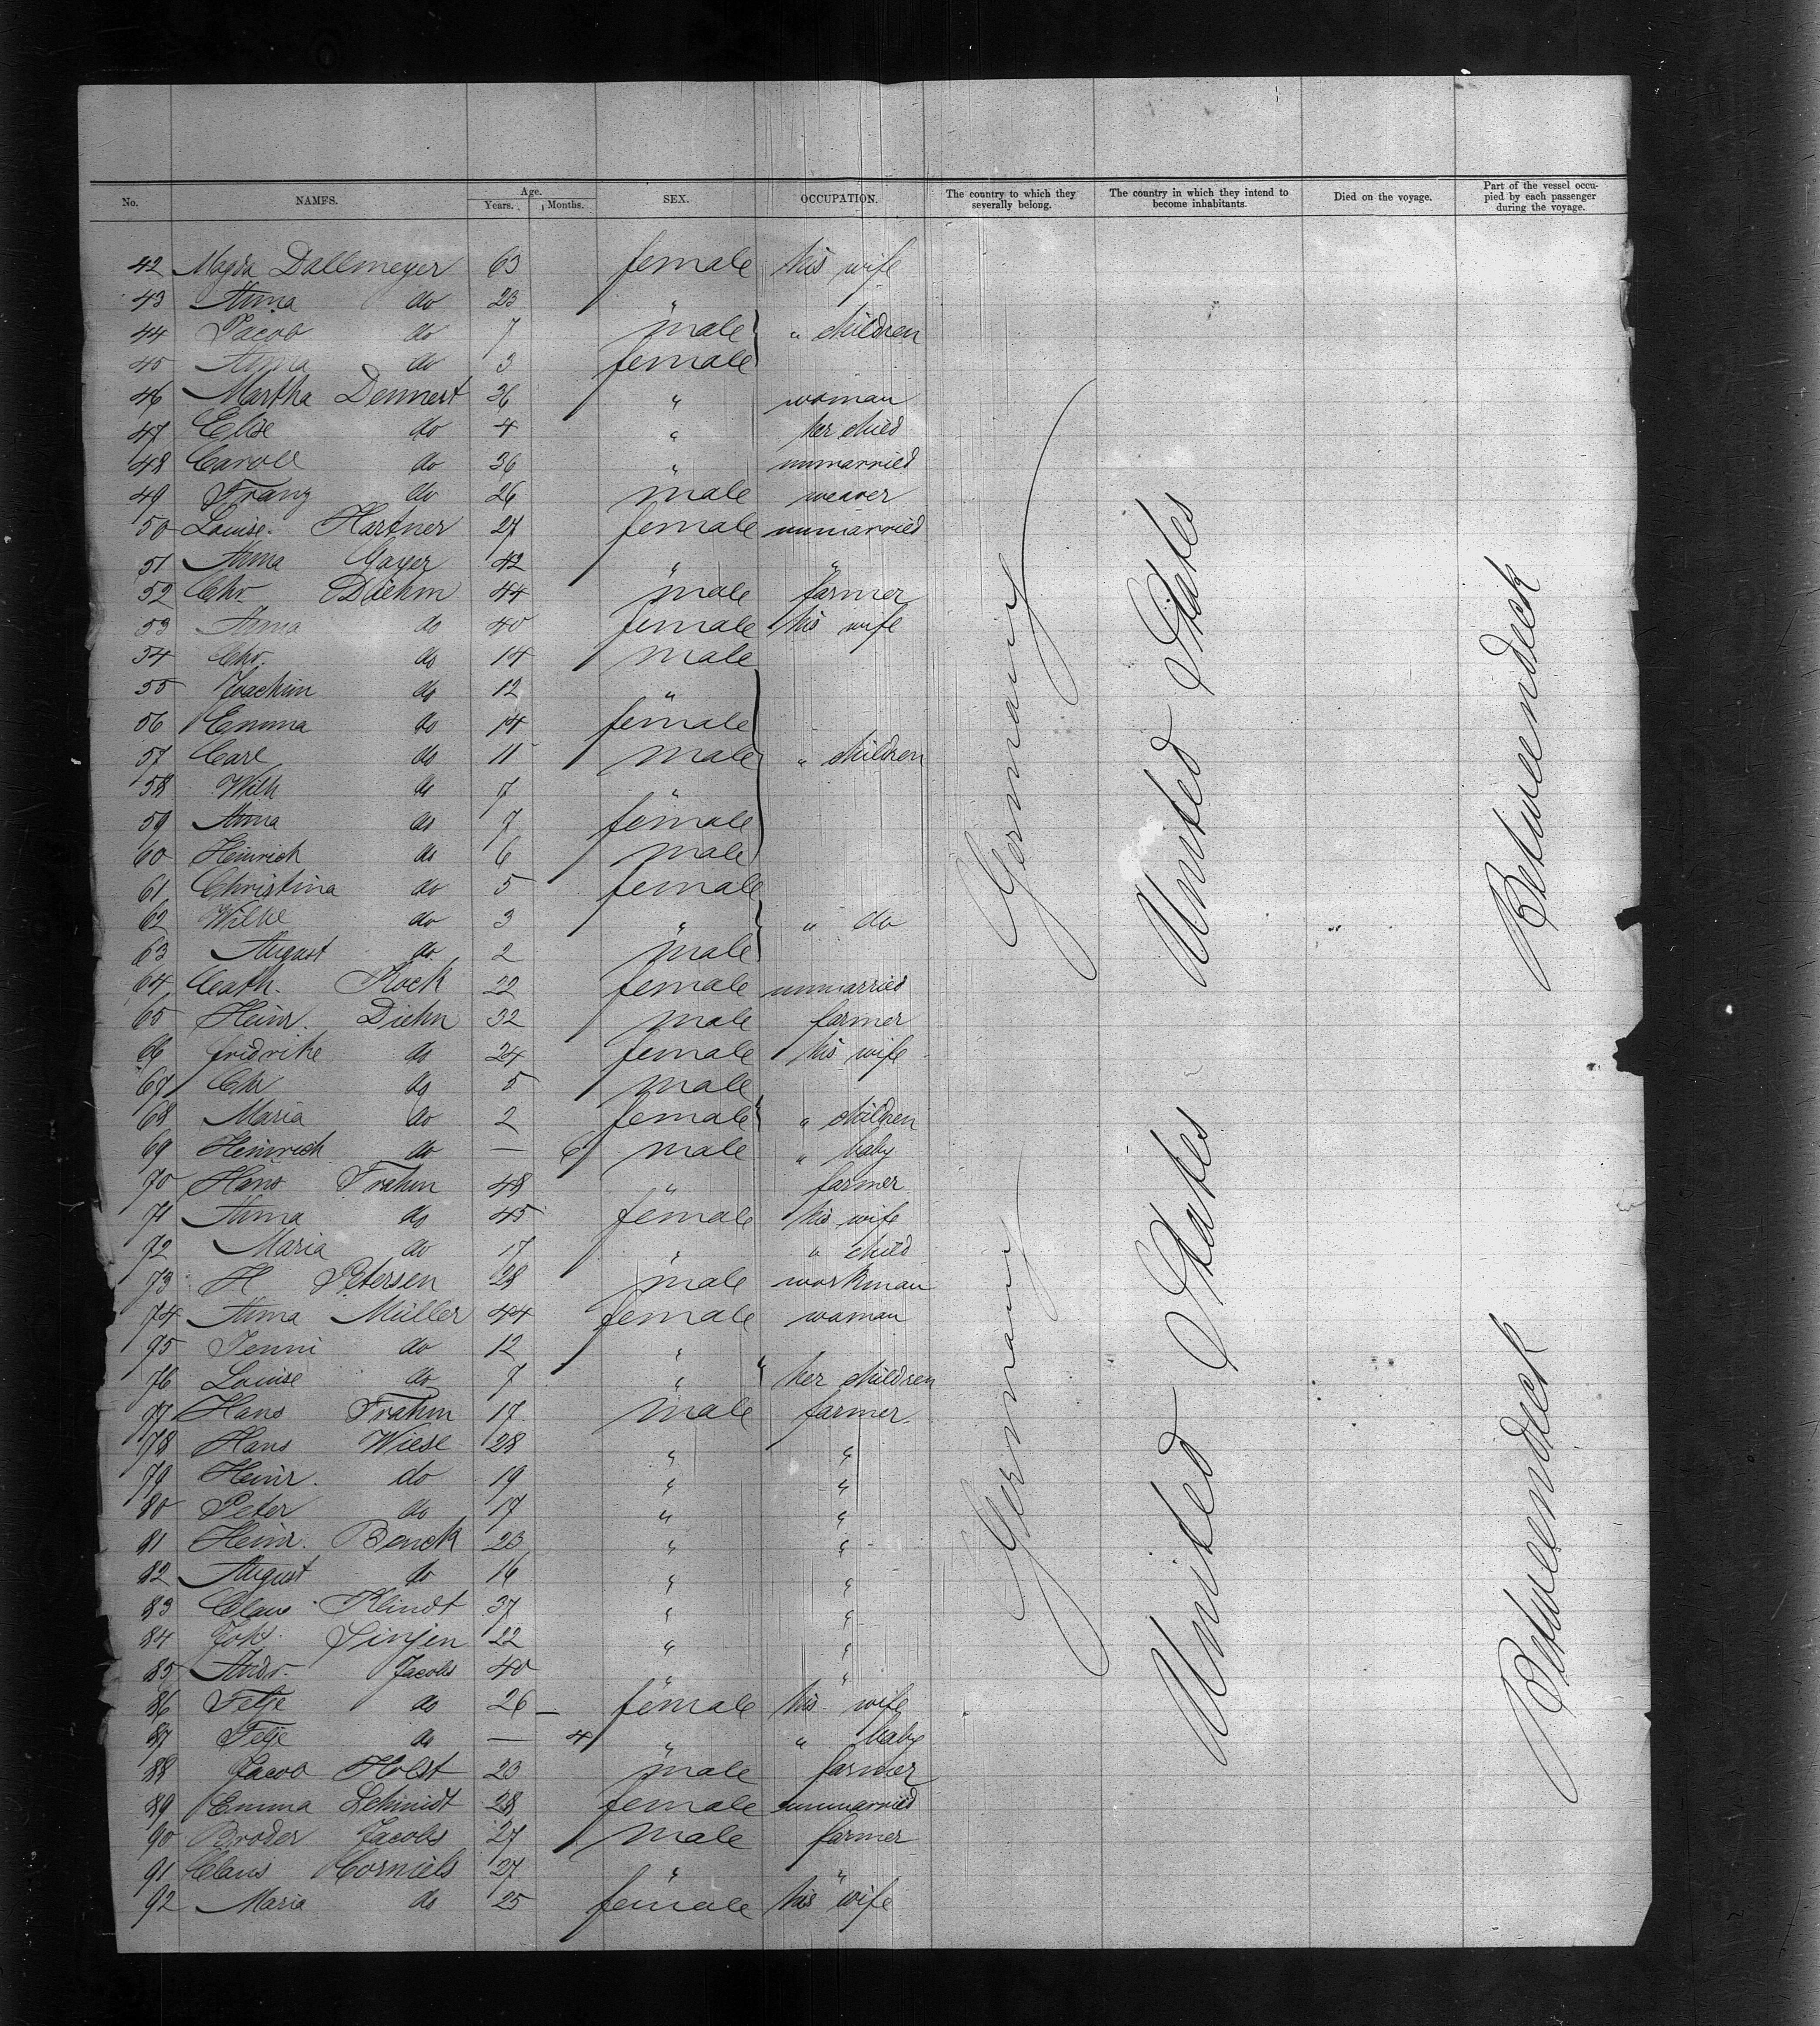 No. NAMES. Age. Years. Months. SEX. OCCUPATION. The country to which they severally belong. The country in which they intend to become inhabitants. Died on the voyage. Part of the vessel occupied by each passenger during the voyage.
42 Magda Dallmeyer 63 female his wife
43 Anna do 23 "
44 Jacob do 7 male " children
45 Anna do 3 female
46 Martha Dennert 36 " woman
47 Elise do 4 " her child
48 Caroll do 36 " unmarried
49 Franz do 26 male weaver
50 Louise Hartner 27 female unmarried
51 Anna Gayer 42 " "
52 Chr. Diehm 44 male farmer
53 Anna do 40 female his wife
54 Chr. do 14 male
55 Joachim do 12 "
56 Emma do 14 female
57 Carl do 11 male " children
58 Wilh do 7 "
59 Anna do 7 female
60 Heinrich do 6 male
61 Christina do 5 female
62 Wilhe do 3 " " do
63 August do 2 male
64 Cath. Rock 22 female unmarried
65 Heinr. Diehn 32 male farmer
66 fridrike do 24 female his wife
67 Chr do 5 male
68 Maria do 2 female " children
69 Heinrich do — 6 male " baby
70 Hans Frahm 48 " farmer
71 Anna do 45 female his wife
72 Maria do 17 " " child
73 H Petersen 28 male workman
74 Anna Müller 44 female woman
75 Jenni do 12 "
76 Louise do 7 " her children
77 Hans Frahm 17 male farmer
78 Hans Wiese 28 " "
79 Heinr. do 19 " "
80 Peter do 17 " "
81 Heinr. Benck 23 " "
82 August do 16 " "
83 Claus Klindt 37 " "
84 Joh. Sinjen 22 " "
85 Andr. Jacobs 40 " "
86 Fetje do 26 — female his wife
87 Fetje do — 4 " " baby
88 Jacob Holst 23 male farmer
89 Emma Schmidt 28 female unmarried
90 Broder Jacobs 27 male farmer
91 Claus Corniels 27 " "
92 Maria do 25 female his wife
Germany
Germany
United States
United States
"
Betweendeck
Betweendeck